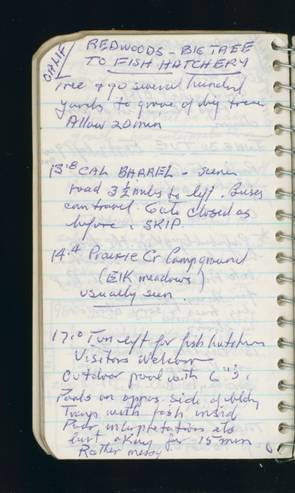 CALIF
REDWOODS - BIG TREE
TO FISH HATCHERY
Tree & go several hundred
yards to grove of big trees
Allow 20 min
13.8 CAL BARREL - scenic
road 3 1/2 miles to left. Buses
can travel. Gate closed as
before. SKIP
14.4 Prairie Cr Campground
(Elk meadows)
usually seen.
17.0 Turn left for fish hatchery
Visitors Welcome
Outdoor pool with 6"s.
Pools on oppos side of bldg
Trays with fish inside
Poor interpretation etc
but okay for 15 min
Rather messy